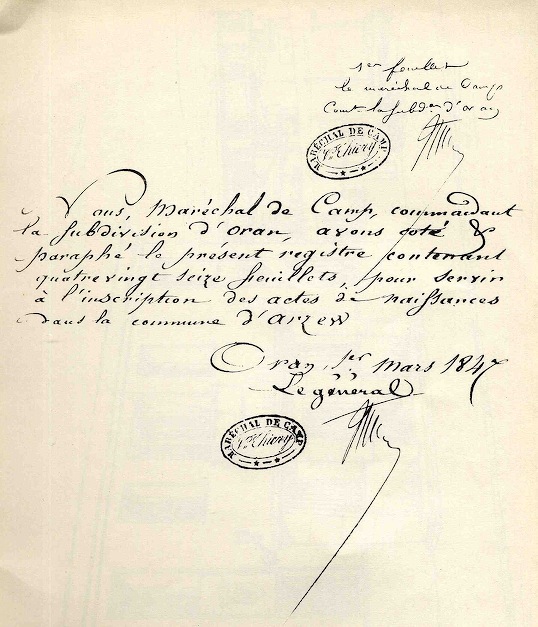 1er feuillet
le maréchal de Camp
Comt la Subdon d'oran
MARÉCHAL DE CAMP
Vte Thiery
Nous, Maréchal de Camp, commandant
la Subdivision d'oran, avons coté &
paraphé le présent registre contenant
quatrevingt seize feuillets, pour servir
à l'inscription des actes de naissances
dans la commune d'arzew
Oran, 1er mars 1847
Le général
MARÉCHAL DE CAMP
Vte Thiery